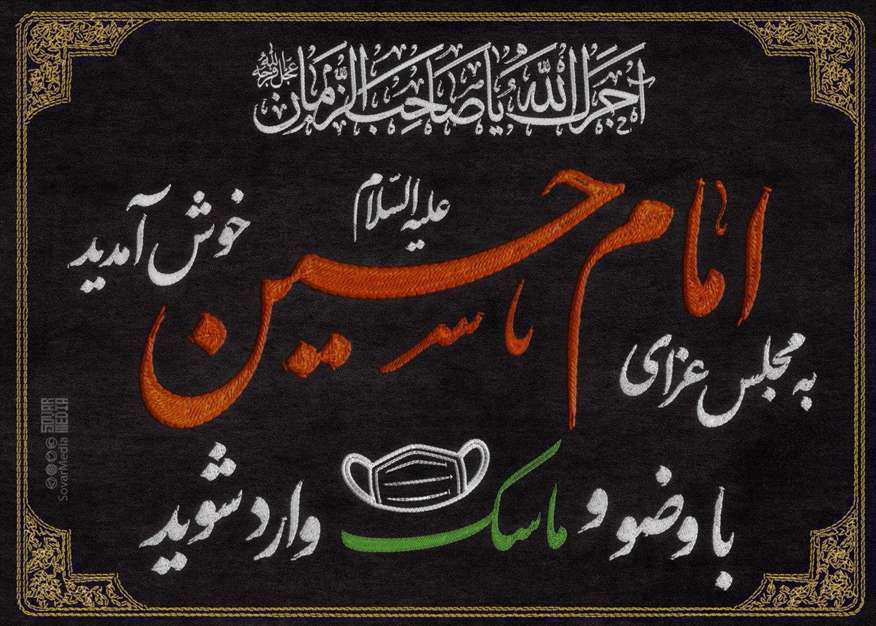 آجرک الله یا صاحب الزمان
عجل الله فرجه
به مجلس عزای
امام حسین
علیه السلام
خوش آمدید
با وضو و ماسک وارد شوید
SOVAR MEDIA
SovarMedia